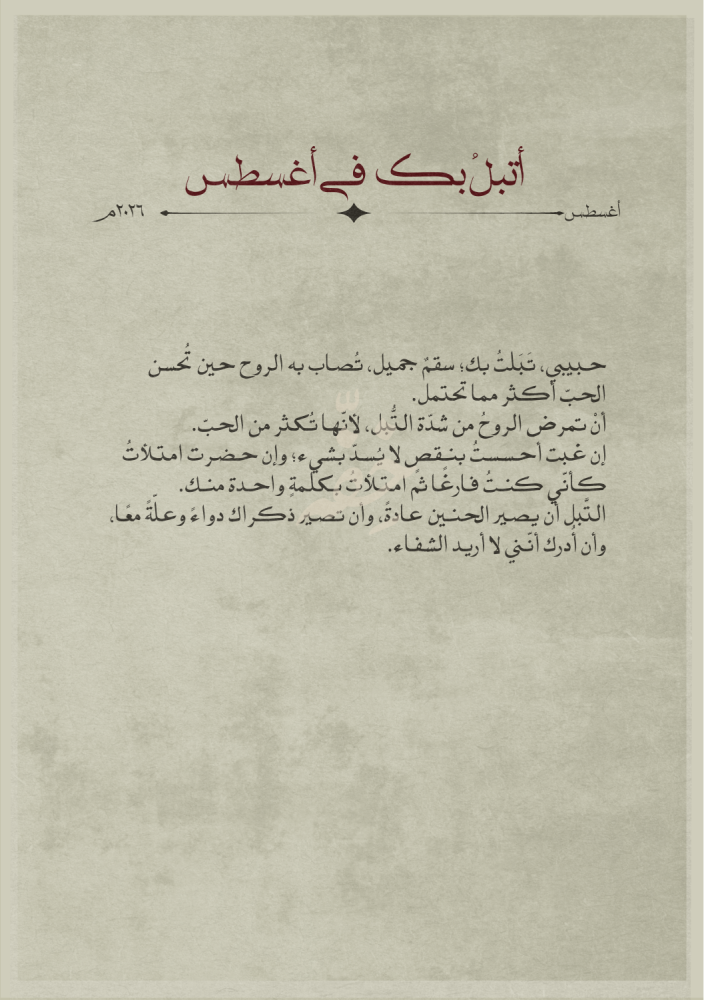 أتبلُ بك في أغسطس
أغسطس ٢٠٢٦م
حبيبي، تَبَلتُ بك؛ سقمٌ جميل، تُصاب به الروح حين تُحسن
الحبّ أكثر مما تحتمل.
أنْ تمرض الروحُ من شدّة التُّبل، لأنّها تُكثر من الحبّ.
إن غبت أحسستُ بنقصٍ لا يُسدّ بشيء؛ وإن حضرت امتلأتُ
كأنّي كنتُ فارغًا ثم امتلأتُ بكلمةٍ واحدة منك.
التّبل أن يصير الحنين عادةً، وأن تصير ذكراك دواءً وعلّةً معًا،
وأن أدرك أنّني لا أريد الشفاء.